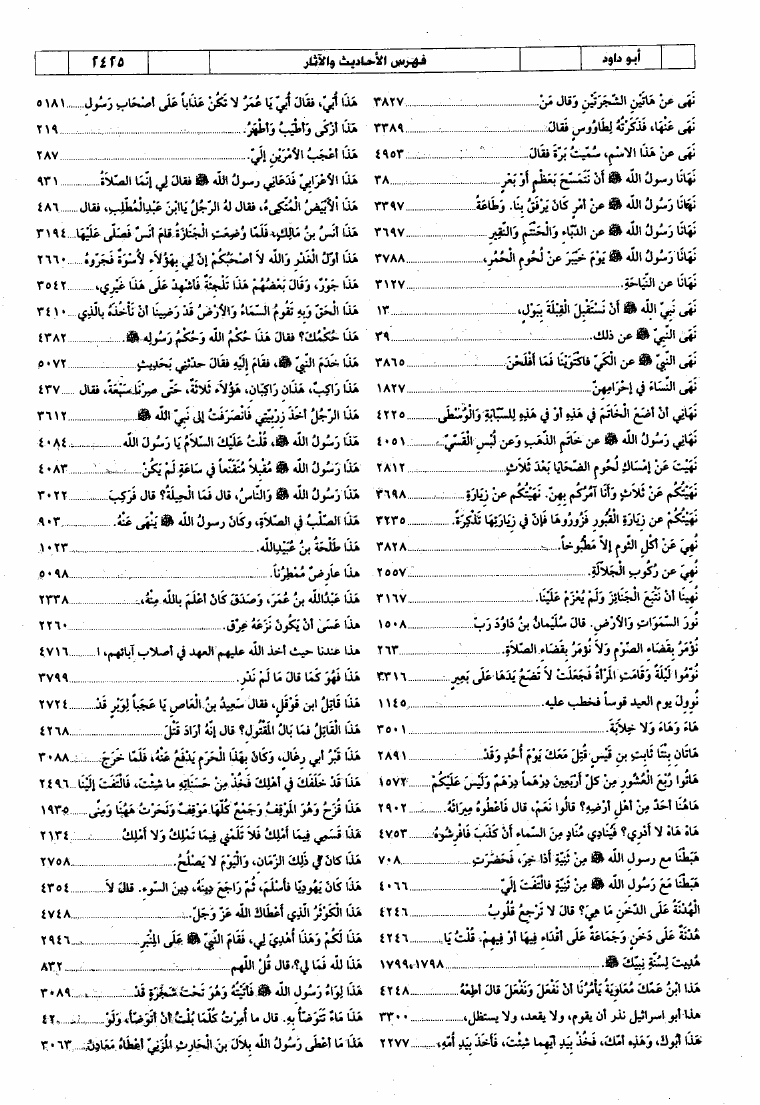 أبو داود
فهرس الأحاديث والآثار
٢٤٢٥
نَهَى عَنْ هَاتَيْنِ الشَّجَرَتَيْنِ وَقال مَنْ ٣٨٢٧
نَهَى عَنْهَا، فَذَكَرْتُهُ لِطَاوُوسٍ فَقالَ ٣٣٨٩
نَهَى عَنْ هَذَا الاسْمِ، سُمِّيتُ بَرَّةَ فقالَ ٤٩٥٣
نَهَانَا رسولُ الله ﷺ أَنْ نَتَمَسَّحَ بِعَظْمٍ أَوْ بَعْرٍ ٣٨
نَهَانَا رَسُولُ الله ﷺ عنْ أَمْرٍ كَانَ يَرْفُقُ بِنَا. وَطَاعَةُ ٣٣٩٧
نَهَانَا رَسُولُ الله ﷺ عن الدُّبَّاءِ وَالْحَنْتَمِ وَالنَّقِيرِ ٣٦٩٧
نَهَانَا رَسُولُ الله ﷺ يَوْمَ خَيْبَرَ عنْ لُحُومِ الْحُمُرِ، ٣٧٨٨
نَهَانَا عن النِّيَاحَةِ. ٣١٢٧
نَهَى نَبِيُّ الله ﷺ أَنْ نَسْتَقْبِلَ الْقِبْلَةَ بِبَوْلٍ، ١٣
نَهَى النَّبيُّ ﷺ عن ذلك. ٣٩
نَهَى النَّبيُّ ﷺ عن الْكَيِّ فاكْتَوَيْنَا فَمَا أَفْلَحْنَ ٣٨٦٥
نَهَى النِّسَاءَ في إحْرَامِهِنَّ ١٨٢٧
نَهَانِي أَنْ أَضَعَ الْخَاتَمَ في هَذِهِ أوْ في هَذِهِ لِلسَّبَّابَةِ وَالْوُسْطَى ٤٢٢٥
نَهَانِي رَسُولُ الله ﷺ عن خَاتَمِ الذَّهَبِ وَعن لُبْسِ الْقَسِّيِّ ٤٠٥١
نَهَيْتَ عَنْ إِمْسَاكِ لُحُومِ الضَّحَايَا بَعْدَ ثَلَاثٍ ٢٨١٢
نَهَيْتُكُم عَنْ ثَلَاثٍ وَأَنَا آمُرُكُم بِهِنَّ. نَهَيْتُكُم عن زِيَارَةِ ٣٦٩٨
نَهَيْتُكُمْ عن زِيَارَةِ الْقُبُورِ فَزُورُوهَا فَإِنَّ في زِيَارَتِهَا تَذْكِرَةً. ٣٢٣٥
نُهِيَ عَنْ أكْلِ الثُّومِ إلَّا مَطْبُوخاً. ٣٨٢٨
نُهِيَ عن رُكُوبِ الْجَلَّالَةِ. ٢٥٥٧
نُهِينَا أَنْ نَتَّبِعَ الْجَنَائِزَ وَلَمْ يُعْزَمْ عَلَيْنَا. ٣١٦٧
نُورَ السَّمَوَاتِ وَالأَرْضِ. قال سُلَيْمَانُ بنُ دَاوُدَ رَبَّ ١٥٠٨
نُؤْمَرُ بِقَضَاءِ الصَّوْمِ وَلَا نُؤْمَرُ بِقَضَاءِ الصَّلَاةِ. ٢٦٣
نُوِّمُوا لَيْلَةً وَقَامَتِ الْمَرْأةُ فَجَعَلَتْ لَا تَضَعُ يَدَهَا عَلَى بَعِيرٍ ٣٣١٦
نُووِلَ يوم العيد قوساً فخطب عليه. ١١٤٥
هَاءَ وَهَاءَ وَلا خِلابَةَ. ٣٥٠١
هَاتَانِ بِنْتَا ثَابِتِ بنِ قَيْسٍ قُتِلَ مَعَكَ يَوْمَ أُحُدٍ وَقَدْ ٢٨٩١
هَاتُوا رُبُعَ الْعُشُورِ مِنْ كلِّ أَرْبَعِينَ دِرْهَماً دِرْهَمٌ وَلَيْسَ عَلَيْكُمْ ١٥٧٢
هَاهُنَا أَحَدٌ مِنْ أَهْلِ أَرْضِهِ؟ قالُوا نَعَمْ، قال فَأَعْطُوهُ مِيرَاثَهُ. ٢٩٠٢
هَاهْ هَاهْ لا أَدْرِي؟ فَيُنَادِي مُنَادٍ مِنَ السَّماءِ أَنْ كَذَبَ فَافْرِشُوهُ ٤٧٥٣
هَبَطْنَا مع رسولِ الله ﷺ مِنْ ثَنِيَّةِ أَذَاخِرَ، فَحَضَرَتِ ٧٠٨
هَبَطْنَا مَعَ رَسُولِ الله ﷺ مِنْ ثَنِيَّةٍ فَالْتَفَتَ إِلَيَّ ٤٠٦٦
الْهُدْنَةُ عَلَى الدَّخَنِ مَا هِيَ؟ قالَ لَا تَرْجِعُ قُلُوبُ ٤٢٤٦
هُدْنَةٌ عَلَى دَخَنٍ وَجَمَاعَةٌ عَلَى أَقْذَاءٍ فِيهَا أَوْ فِيهِمْ. قُلْتُ يَا ٤٢٤٦
هُدِيتَ لِسُنَّةِ نَبِيِّكَ ﷺ. ١٧٩٨، ١٧٩٩
هَذا ابْنُ عَمِّكَ مُعَاوِيَةُ يَأْمُرُنَا أنْ نَفْعَلَ وَنَفْعَلَ قالَ أَطِعْهُ ٤٢٤٨
هذا أبو اسرائيل نذر أن يقوم، ولا يقعد، ولا يستظل، ٣٣٠٠
هَذَا أَبُوكَ، وَهَذِهِ أُمُّكَ، فَخُذْ بِيَدِ أَيِّهِمَا شِئْتَ، فَأَخَذَ بِيَدِ أُمِّهِ، ٢٢٧٧
هَذَا أُبَيٌّ، فقالَ أُبَيٌّ يَا عُمَرُ لا تَكُنْ عَذَاباً عَلَى أَصْحَابِ رَسُولِ ٥١٨١
هَذَا أَزْكَى وَأَطْيَبُ وَأَطْهَرُ. ٢١٩
هَذَا أَعْجَبُ الأَمْرَيْنِ إِلَيَّ. ٢٨٧
هَذَا الأعْرَابيُّ فَدَعَانِي رسولُ الله ﷺ فقالَ لِي إِنَّمَا الصَّلاةُ ٩٣١
هَذَا الْأَبْيَضُ الْمُتَّكِىءُ، فقالَ لهُ الرَّجُلُ يَاابنَ عَبْدِالْمُطَّلِبِ، فقال ٤٨٦
هَذَا أَنَسُ بنُ مَالِكٍ، فَلَمَّا وُضِعَتِ الْجَنَازَةُ قامَ أَنَسٌ فَصَلَّى عَلَيْهَا ٣١٩٤
هَذَا أَوَّلُ الْغَدْرِ وَالله لَا أَصْحَبُكُمْ إنَّ لِي بِهَؤُلَاءِ لَأُسْوَةً فَجَرُّوهُ ٢٦٦٠
هَذَا جَوْرٌ، وَقالَ بَعْضُهُمْ هَذَا تَلْجِئَةٌ فَأَشْهِدْ عَلَى هَذَا غَيْرِي، ٣٥٤٢
هَذَا الْحَقُّ وَبِهِ تَقُومُ السَّمَاءُ وَالأَرْضُ قَدْ رَضِينَا أَنْ نَأْخُذَهُ بالَّذِي ٣٤١٠
هَذَا حُكْمُكَ؟ فقالَ هَذَا حُكْمُ الله وَحُكْمُ رَسُولِهِ ﷺ. ٤٣٨٢
هَذَا خَدَمَ النَّبيَّ ﷺ، فَقَامَ إلَيْهِ فقالَ حدِّثْنِي بَحَدِيثٍ ٥٠٧٢
هَذَا رَاكِبٌ، هَذَانِ رَاكِبَانِ، هَؤُلَاءِ ثَلَاثَةٌ، حَتَّى صِرْنَا سَبْعَةً، فقال ٤٣٧
هَذَا الرَّجُلُ أَخَذَ زِرْبِيَّتِي فَانْصَرَفْتُ إلى نَبِيِّ الله ﷺ ٣٦١٢
هَذَا رَسُولُ الله ﷺ، قُلْتُ عَلَيْكَ السَّلَامُ يَا رَسُولَ الله ٤٠٨٤
هَذَا رَسُولُ الله ﷺ مُقْبِلاً مُتَقَنِّعاً في سَاعَةٍ لَمْ يَكُنْ ٤٠٨٣
هَذَا رَسُولُ الله ﷺ وَالنَّاسُ، قال فَمَا الْحِيلَةُ؟ قال فَرَكِبَ ٣٠٢٢
هَذَا الصَّلْبُ في الصَّلَاةِ، وكَانَ رسولُ الله ﷺ يَنْهَى عَنْهُ. ٩٠٣
هَذَا طَلْحَةُ بنُ عُبَيْدِالله. ١٠٢٣
هَذا عارِضٌ مُمْطِرُنَا. ٥٠٩٨
هَذَا عَبْدُالله بنُ عُمَرَ، وَصَدَقَ كَانَ أَعْلَمَ بِالله مِنْهُ، ٢٣٣٨
هَذَا عَسَى أَنْ يَكُونَ نَزَعَهُ عِرْقٌ. ٢٢٦٠
هذا عندنا حيث أخذ الله عليهم العهد في أصلاب آبائهم، ا ٤٧١٦
هَذَا فَهُوَ كَمَا قالَ مَا لَمْ نَدْرِ. ٣٧٩٩
هَذَا قَاتِلُ ابنِ قَوْقَلٍ، فقال سَعِيدُ بنُ الْعَاصِ يَا عَجَباً لِوَبْرٍ قَدْ ٢٧٢٤
هَذَا الْقَاتِلُ فمَا بَالُ المَقْتُولِ؟ قال إنَّهُ أَرَادَ قَتْلَ ٤٢٦٨
هَذَا قَبْرُ أبي رِغَالٍ، وَكَانَ بهَذَا الْحَرَمِ يَدْفَعُ عَنْهُ، فَلَمَّا خَرَجَ ٣٠٨٨
هَذَا قَدْ خَلَفَكَ في أَهْلِكَ فَخُذْ مِنْ حَسَنَاتِهِ ما شِئْتَ، فَالْتَفَتَ إِلَيْنَا ٢٤٩٦
هَذَا قُزَحُ وَهُوَ الْمَوْقِفُ وَجَمْعٌ كُلُّهَا مَوْقِفٌ وَنَحَرْتُ هَهُنَا وَمِنًى ١٩٣٥
هَذَا قَسْمِي فِيمَا أَمْلِكُ فَلَا تَلُمْنِي فِيمَا تَمْلِكُ وَلَا أَمْلِكُ ٢١٣٤
هَذَا كَانَ في ذَلِكَ الزَّمَانِ، وَالْيَوْمَ لَا يَصْلُحُ. ٢٧٥٨
هَذَا كَانَ يَهُودِيًّا فَأَسْلَمَ، ثُمَّ رَاجَعَ دِينَهُ، دِينَ السَّوءِ. قالَ لَا ٤٣٥٤
هَذَا الْكَوْثَرُ الَّذِي أَعْطَاكَ الله عَزَّ وَجَلَّ. ٤٧٤٨
هَذَا لَكُمْ وَهَذَا أُهْدِيَ لِي، فَقَامَ النَّبيُّ ﷺ عَلَى الْمِنْبَرِ ٢٩٤٦
هَذَا لله فَمَا لِي؟، قال قُلْ اللهم ٨٣٢
هَذَا لِوَاءُ رَسُولِ الله ﷺ فَأَتَيْتُهُ وَهُوَ تَحْتَ شَجَرَةٍ قَدْ ٣٠٨٩
هَذَا مَاءٌ تَتَوَضَّأُ بِهِ. قال ما أُمِرْتُ كُلَّمَا بُلْتُ أنْ أَتَوَضَّأَ، وَلَوْ ٤٢
هَذَا مَا أَعْطَى رَسُولُ الله بِلَالَ بنَ الْحَارِثِ الْمُزَنِيَّ أَعْطَاهُ مَعَادِنَ ٣٠٦٣